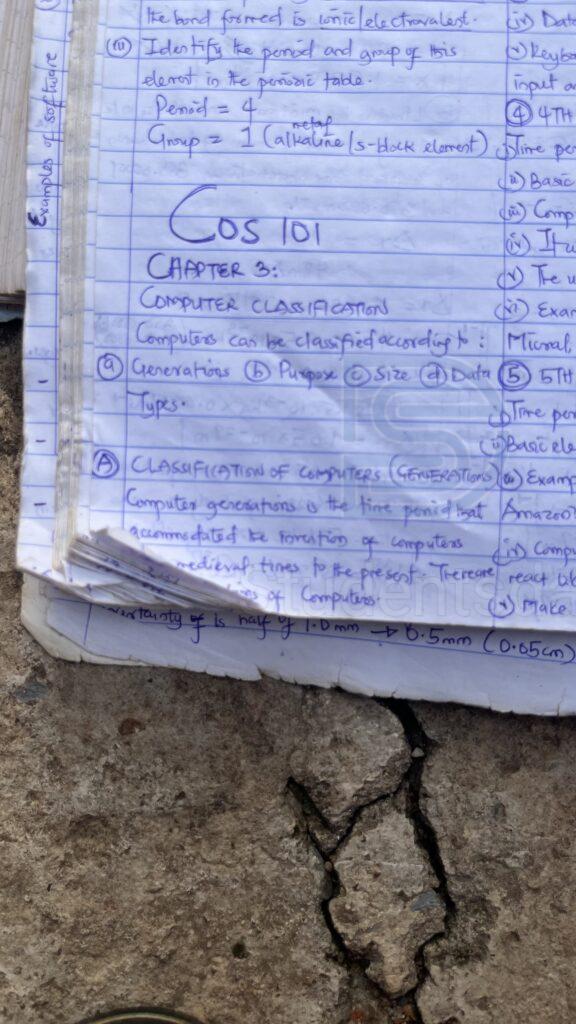 the bond formed is ionic/electrovalent.
(iii) Identify the period and group of this
element in the periodic table.
Period = 4
metal
Group = 1 (alkaline/s-block element)
COS 101
CHAPTER 3:
COMPUTER CLASSIFICATION
Computers can be classified according to:
(a) Generations (b) Purpose (c) Size (d) Data
Types.
(A) CLASSIFICATION OF COMPUTERS (GENERATIONS)
Computer generations is the time period that
accommodated the formation of computers
medieval times to the present. There are
of Computers.
is half of 1.0mm → 0.5mm (0.05cm)
Examples of software
(iv) Data
(v) Keybo
input a
(4) 4TH
(i) Time per
(ii) Basic
(iii) Comp
(iv) It u
(v) The u
(vi) Exam
Micral,
(5) 5TH
(i) Time per
(ii) Basic ele
(iii) Examp
Amazon
(iv) Compu
react lik
(v) Make